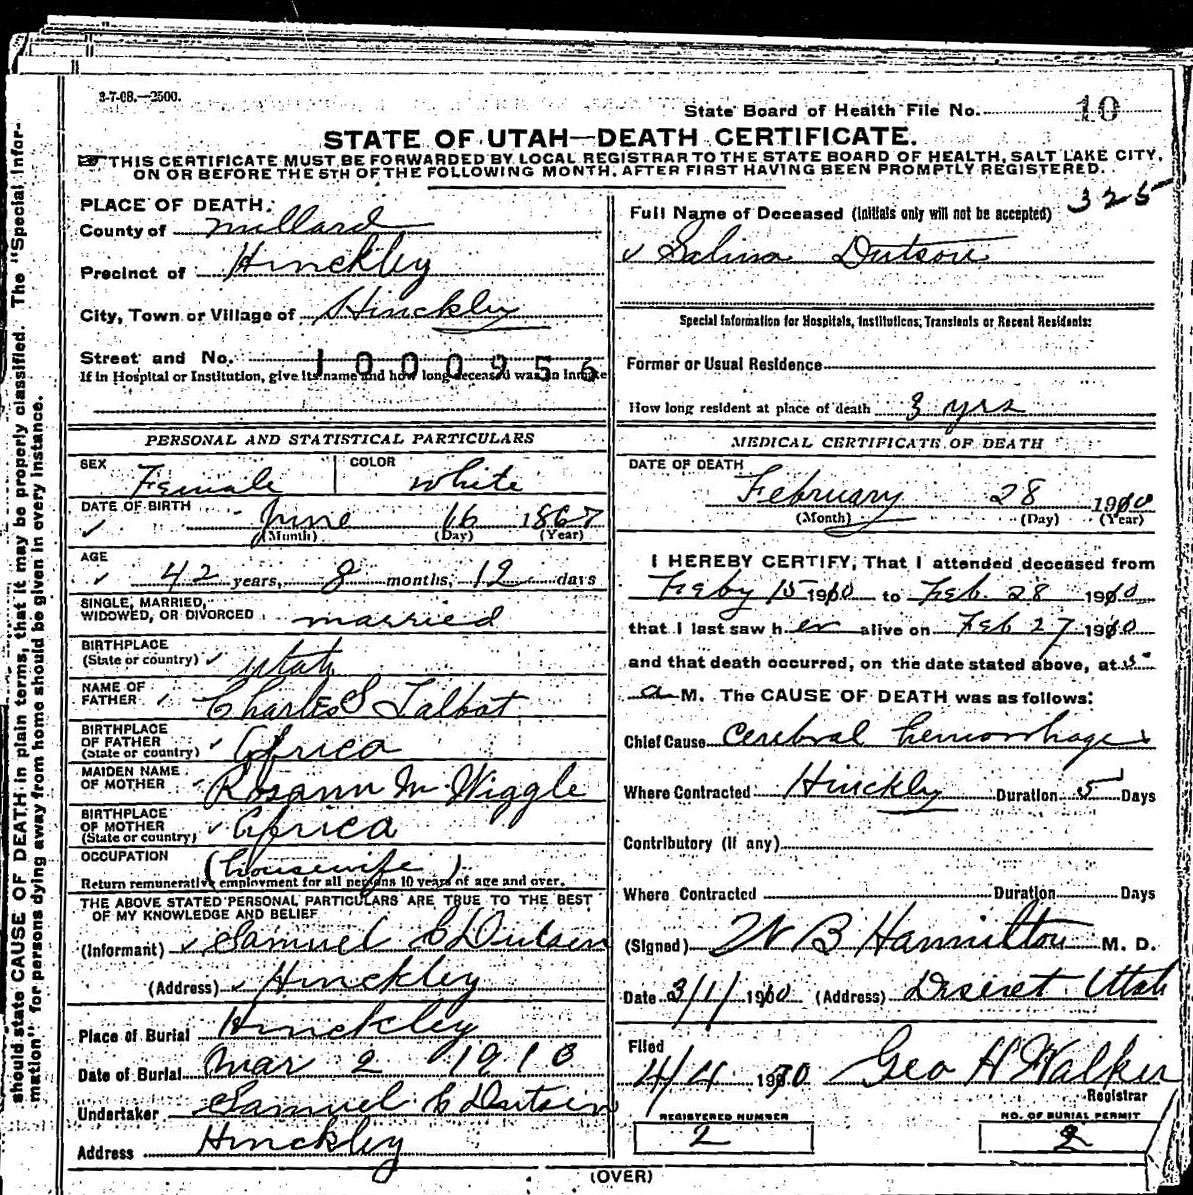 3-7-08.—2500.
State Board of Health File No. 10
STATE OF UTAH—DEATH CERTIFICATE.
THIS CERTIFICATE MUST BE FORWARDED BY LOCAL REGISTRAR TO THE STATE BOARD OF HEALTH, SALT LAKE CITY,
ON OR BEFORE THE 5TH OF THE FOLLOWING MONTH, AFTER FIRST HAVING BEEN PROMPTLY REGISTERED.
325
PLACE OF DEATH:
County of Millard
Precinct of Hinckley
City, Town or Village of Hinckley
Street and No. 1000956
If in Hospital or Institution, give its name and how long deceased was an inmate
Full Name of Deceased (Initials only will not be accepted)
Salina Dutson
Special Information for Hospitals, Institutions, Transients or Recent Residents:
Former or Usual Residence
How long resident at place of death 3 yrs
PERSONAL AND STATISTICAL PARTICULARS
SEX Female COLOR White
DATE OF BIRTH June 16 1867
(Month) (Day) (Year)
AGE 42 years, 8 months, 12 days
SINGLE, MARRIED,
WIDOWED, OR DIVORCED married
BIRTHPLACE
(State or country) Utah
NAME OF
FATHER Charles S Talbot
BIRTHPLACE
OF FATHER
(State or country) Africa
MAIDEN NAME
OF MOTHER Rosann M Wiggle
BIRTHPLACE
OF MOTHER
(State or country) Africa
OCCUPATION (housewife)
Return remunerative employment for all persons 10 years of age and over.
THE ABOVE STATED PERSONAL PARTICULARS ARE TRUE TO THE BEST
OF MY KNOWLEDGE AND BELIEF
(Informant) Samuel C Dutson
(Address) Hinckley
Place of Burial Hinckley
Date of Burial Mar 2 1910
Undertaker Samuel C Dutson
Address Hinckley
MEDICAL CERTIFICATE OF DEATH
DATE OF DEATH
February 28 1910
(Month) (Day) (Year)
I HEREBY CERTIFY, That I attended deceased from
Feby 15 1910 to Feb. 28 1910
that I last saw her alive on Feb 27 1910
and that death occurred, on the date stated above, at 5
a M. The CAUSE OF DEATH was as follows:
Chief Cause Cerebral hemorrhage
Where Contracted Hinckley Duration 5 Days
Contributory (if any)
Where Contracted Duration Days
(Signed) W B Hamilton M. D.
Date 3/1/1910 (Address) Deseret Utah
Filed
4/4 1910 Geo H Walker
Registrar
REGISTERED NUMBER NO. OF BURIAL PERMIT
2 2
(OVER)
should state CAUSE OF DEATH in plain terms, that it may be properly classified. The "Special Infor-
mation" for persons dying away from home should be given in every instance.